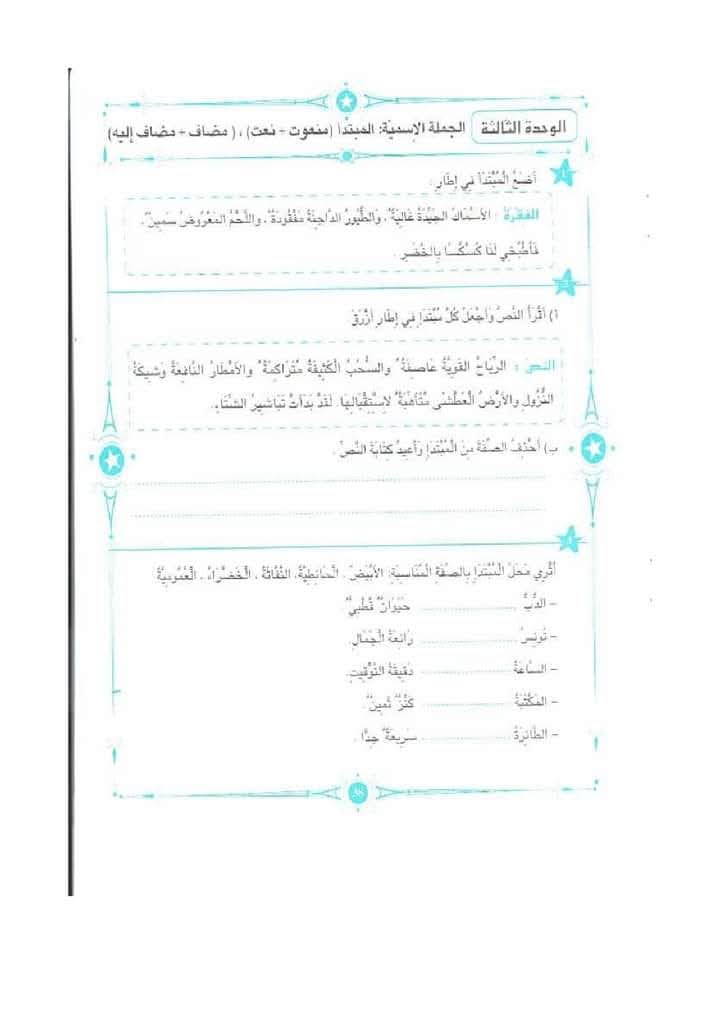 الوحدة الثالثة الجملة الإسمية: المبتدأ (منعوت + نعت) ، ( مضاف + مضاف إليه)
1 أضعُ الْمُبْتَدَأ فِي إِطَارٍ :
الفقرة : الأسْمَاكُ الجَيِّدَةُ غَالِيَةٌ ، وَالطُّيُورُ الدَّاجِنَةُ مَفْقُودَةٌ ، وَاللَّحْمُ المَعْرُوضُ سَمِينٌ،
فَاطْبُخِي لَنَا كُسْكُسًا بِالخُضَرِ .
أ) أَقْرَأُ النَّصَّ وَأَجْعَلُ كُلَّ مُبْتَدَإٍ فِي إِطَارٍ أَزْرَقَ
النص : الرِّيَاحُ القَوِيَّةُ عَاصِفَةٌ وَالسُّحُبُ الْكَثِيفَةُ مُتَرَاكِمَةٌ وَالأَمْطَارُ النَّافِعَةُ وَشِيكَةُ
النُّزُولِ وَالأَرْضُ الْعَطْشَى مُتَأَهِّبَةٌ لِاسْتِقْبَالِهَا. لَقَدْ بَدَأَتْ تَبَاشِيرُ الشِّتَاءِ.
ب) أَحْذِفُ الصِّفَةَ مِنَ الْمُبْتَدَإِ وَأُعِيدُ كِتَابَةَ النَّصِّ .
أُثْرِي مَحَلَّ الْمُبْتَدَإِ بِالصِّفَةِ الْمُنَاسِبَةِ: الأَبْيَضُ ، الْحَائِطِيَّةُ، النَّفَّاثَةُ ، الْخَضْرَاءُ ، الْعُمُومِيَّةُ
– الدُّبُّ .................... حَيَوَانٌ قُطْبِيٌّ.
– تُونِسُ .................... رَائِعَةُ الْجَمَالِ.
– السَّاعَةُ .................... دَقِيقَةُ التَّوْقِيتِ.
– المَكْتَبَةُ .................... كَنْزٌ ثَمِينٌ.
– الطَّائِرَةُ .................... سَرِيعَةٌ جِدًّا .